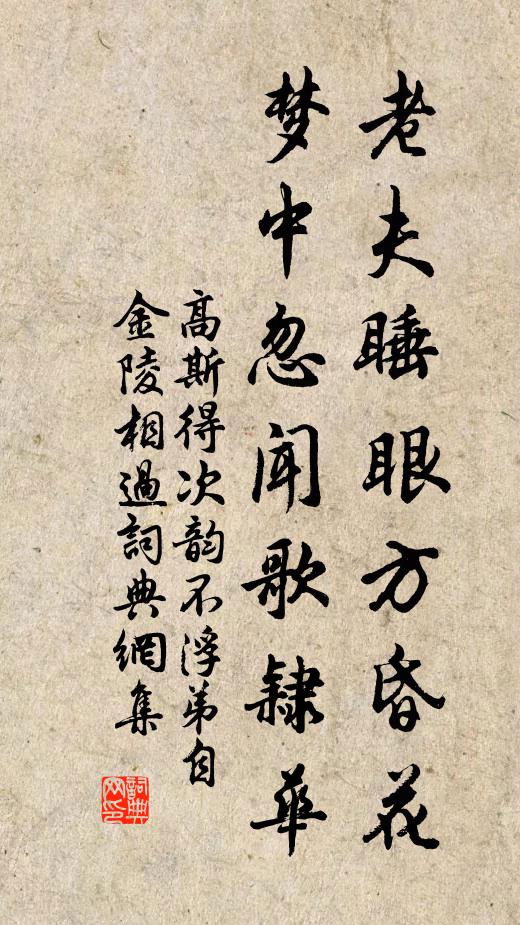 老夫睡眼方昏花
梦中忽闻歌隷華
高斯得次韵不浮弟自
金陵相過詞典網集
詞典网印